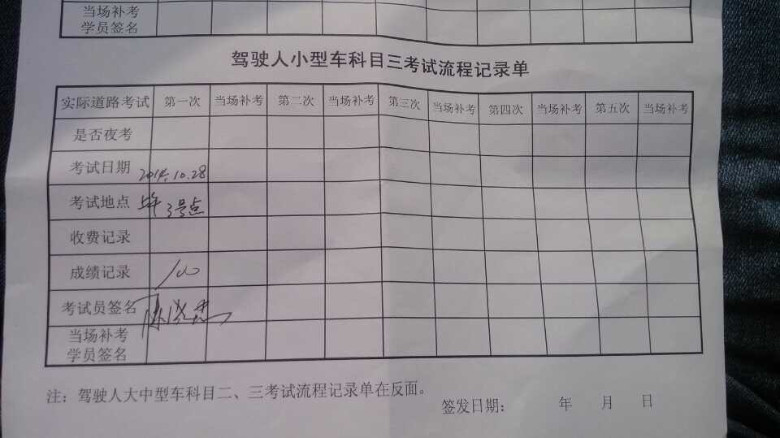 当场补考
学员签名
驾驶人小型车科目三考试流程记录单
实际道路考试 第一次 当场补考 第二次 当场补考 第三次 当场补考 第四次 当场补考 第五次 当场补考
是否夜考
考试日期 2014.10.28
考试地点 3号点
收费记录
成绩记录 100
考试员签名
当场补考
学员签名
注：驾驶人大中型车科目二、三考试流程记录单在反面。
签发日期： 年 月 日